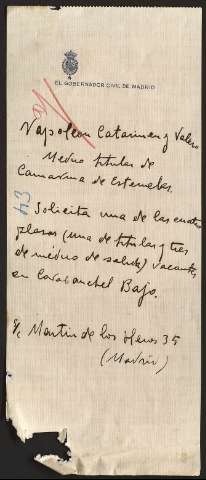 EL GOBERNADOR CIVIL DE MADRID
Napoleon Catarineu y Valero
Medico titular de
Camarma de Esteruelas.
43
Solicita una de las cuatro
plazas (una de titular y tres
de médico de salud) vacantes
en Carabanchel Bajo.
S/c Martin de los Heros 35
(Madrid)